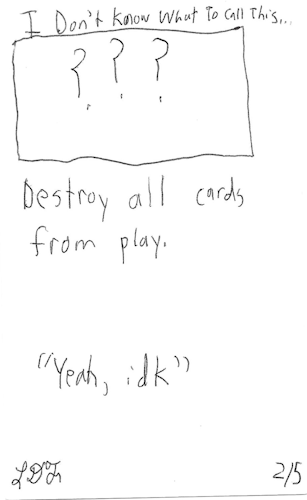 I Don't Know What To Call This...
? ? ?
Destroy all cards
from play.
"Yeah, idk"
2/5